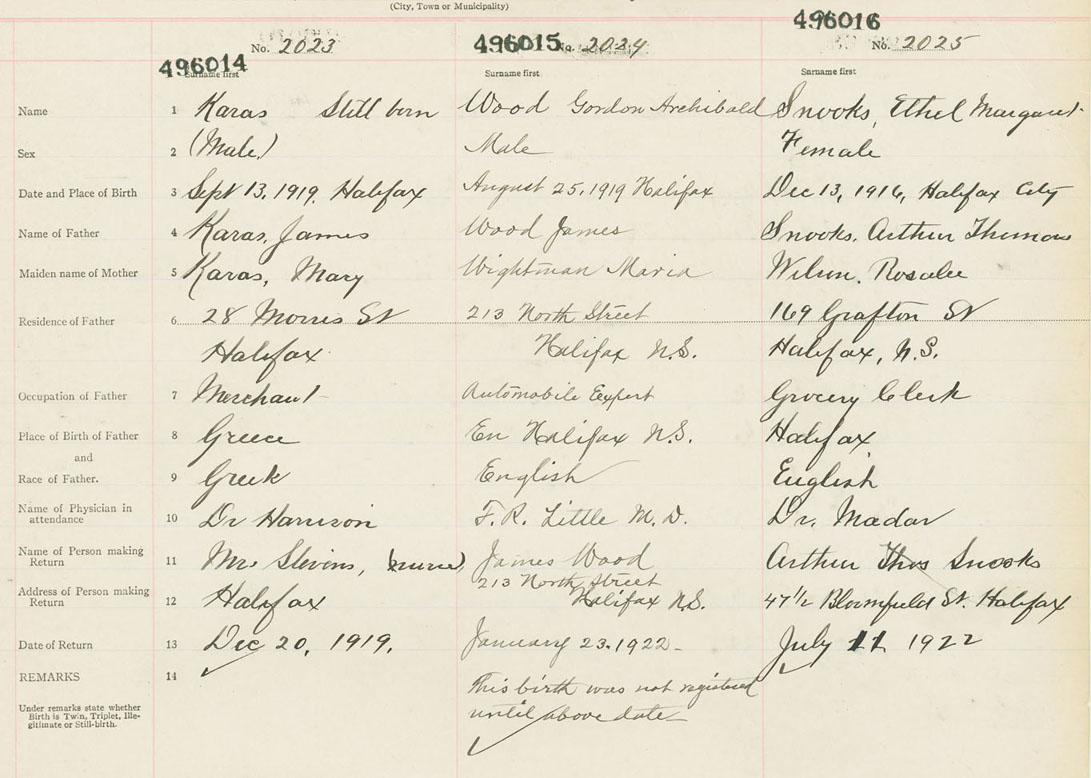 (City, Town or Municipality)
496014 No. 2023 496015 No. 2024 496016 No. 2025
Surname first Surname first Surname first
Name 1 Karas Still born Wood Gordon Archibald Snooks, Ethel Margaret
Sex 2 (Male) Male Female
Date and Place of Birth 3 Sept 13, 1919, Halifax August 25, 1919 Halifax Dec 13, 1916, Halifax City
Name of Father 4 Karas, James Wood James Snooks, Arthur Thomas
Maiden name of Mother 5 Karas, Mary Wightman Maria Wilson, Rosalee
Residence of Father 6 28 Morris St 213 North Street 169 Grafton St
Halifax Halifax N.S. Halifax, N.S.
Occupation of Father 7 Merchant Automobile Expert Grocery Clerk
Place of Birth of Father 8 Greece En Halifax N.S. Halifax
and
Race of Father. 9 Greek English English
Name of Physician in
attendance 10 Dr Harrison F. R. Little M. D. Dr. Madar
Name of Person making
Return 11 Mrs Stevens, (nurse) James Wood Arthur Thos Snooks
213 North Street
Address of Person making
Return 12 Halifax Halifax N.S. 47 1/2 Bloomfield St. Halifax
Date of Return 13 Dec 20, 1919. January 23. 1922 - July 11 1922
REMARKS 14
This birth was not registered
until above date
Under remarks state whether
Birth is Twin, Triplet, Ille-
gitimate or Still-birth.